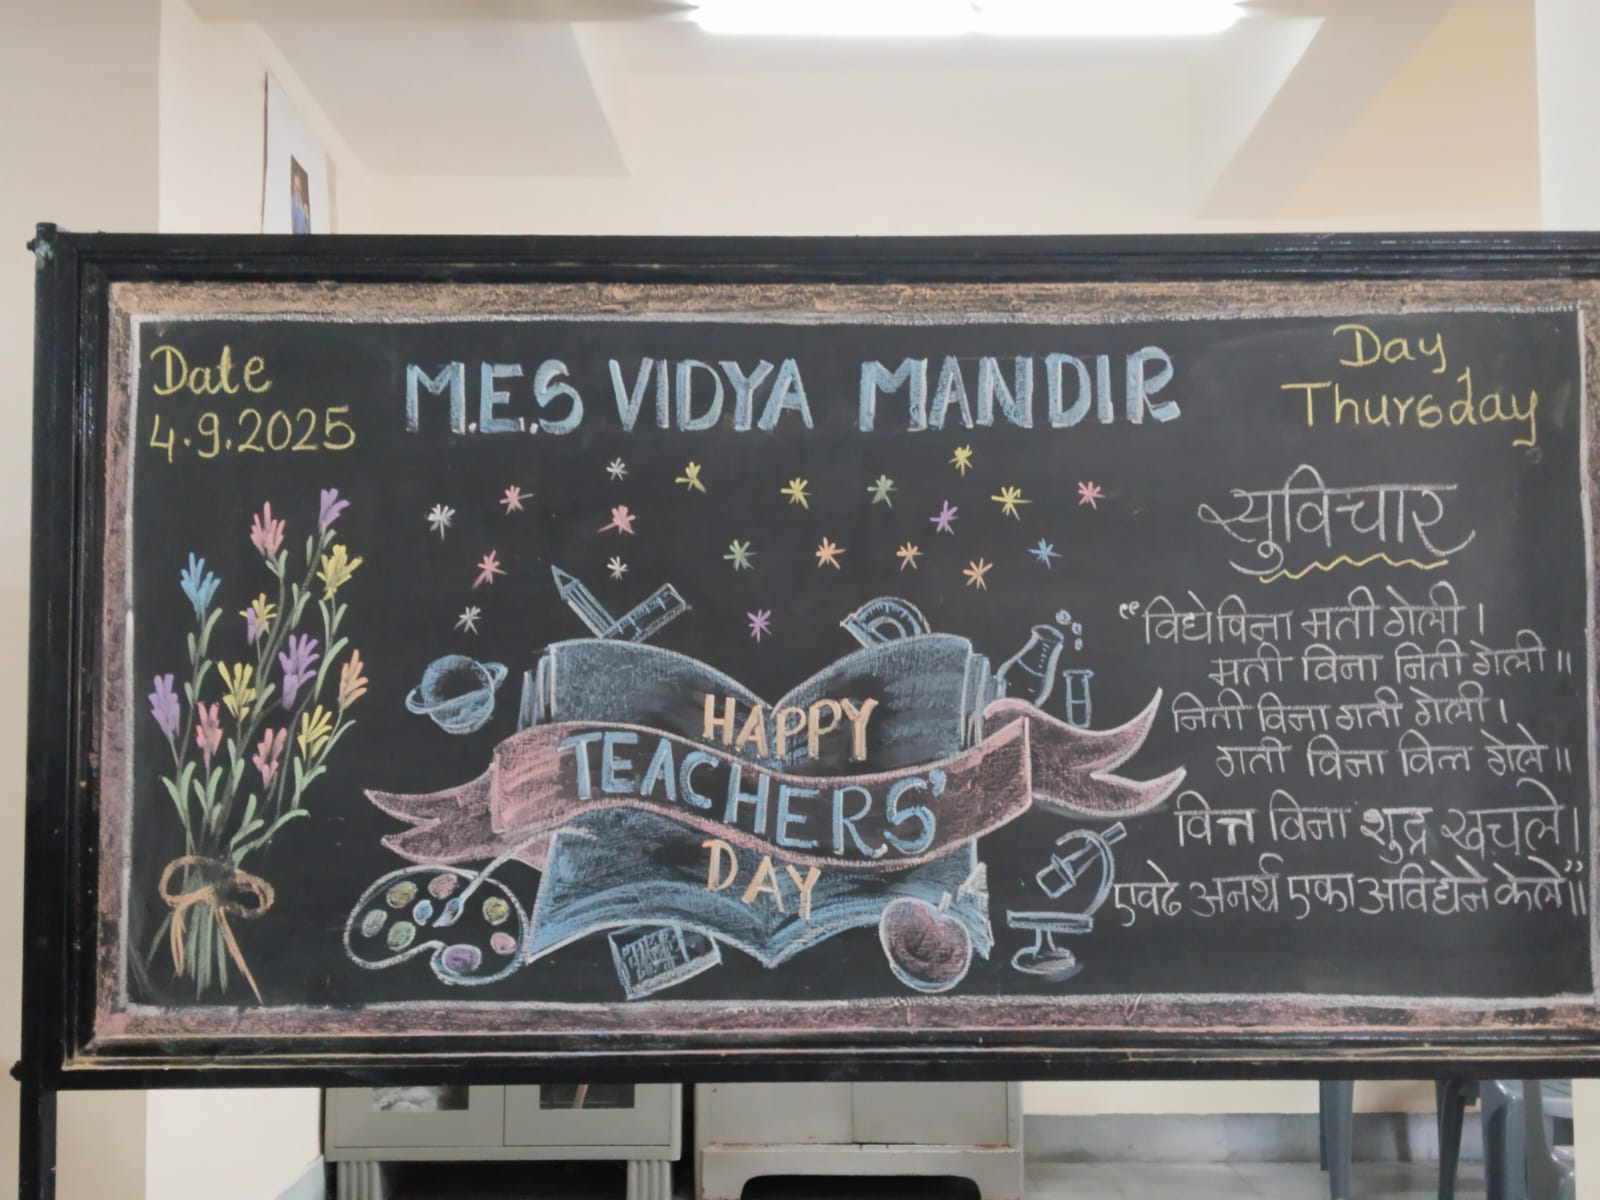 Date
4.9.2025
M.E.S VIDYA MANDIR
Day
Thursday
HAPPY
TEACHERS'
DAY
सुविचार
“विद्येविना मती गेली।
मती विना निती गेली॥
निती विना गती गेली।
गती विना वित्त गेले॥
वित्त विना शुद्र खचले।
एवढे अनर्थ एका अविद्येने केले”॥